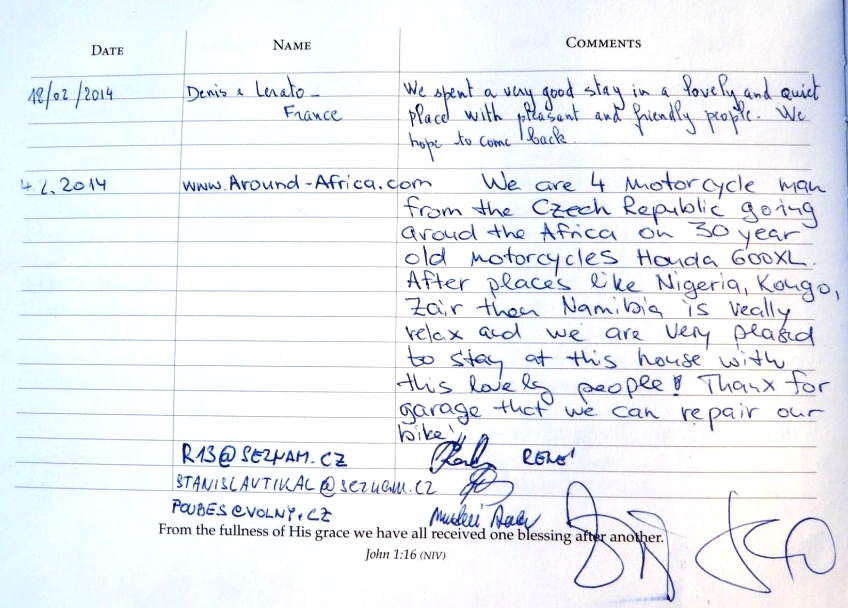 DATE NAME COMMENTS
12/02/2014 Denis & Lerato - We spent a very good stay in a lovely and quiet
France place with pleasant and friendly people. We
hope to come back.
4.2.2014 www.Around-Africa.com We are 4 motorcycle man
from the Czech Republic going
aroud the Africa on 30 year
old motorcycles Honda 600XL.
After places like Nigeria, Kongo,
Zair then Namibia is really
relax and we are very pleased
to stay at this house with
this lovely people! Thanx for
garage that we can repair our
bike!!
R13@SEZNAM.CZ RENÉ
STANISLAVTIKAL@SEZNAM.CZ
POUBES@VOLNY.CZ
From the fullness of His grace we have all received one blessing after another.
John 1:16 (NIV)